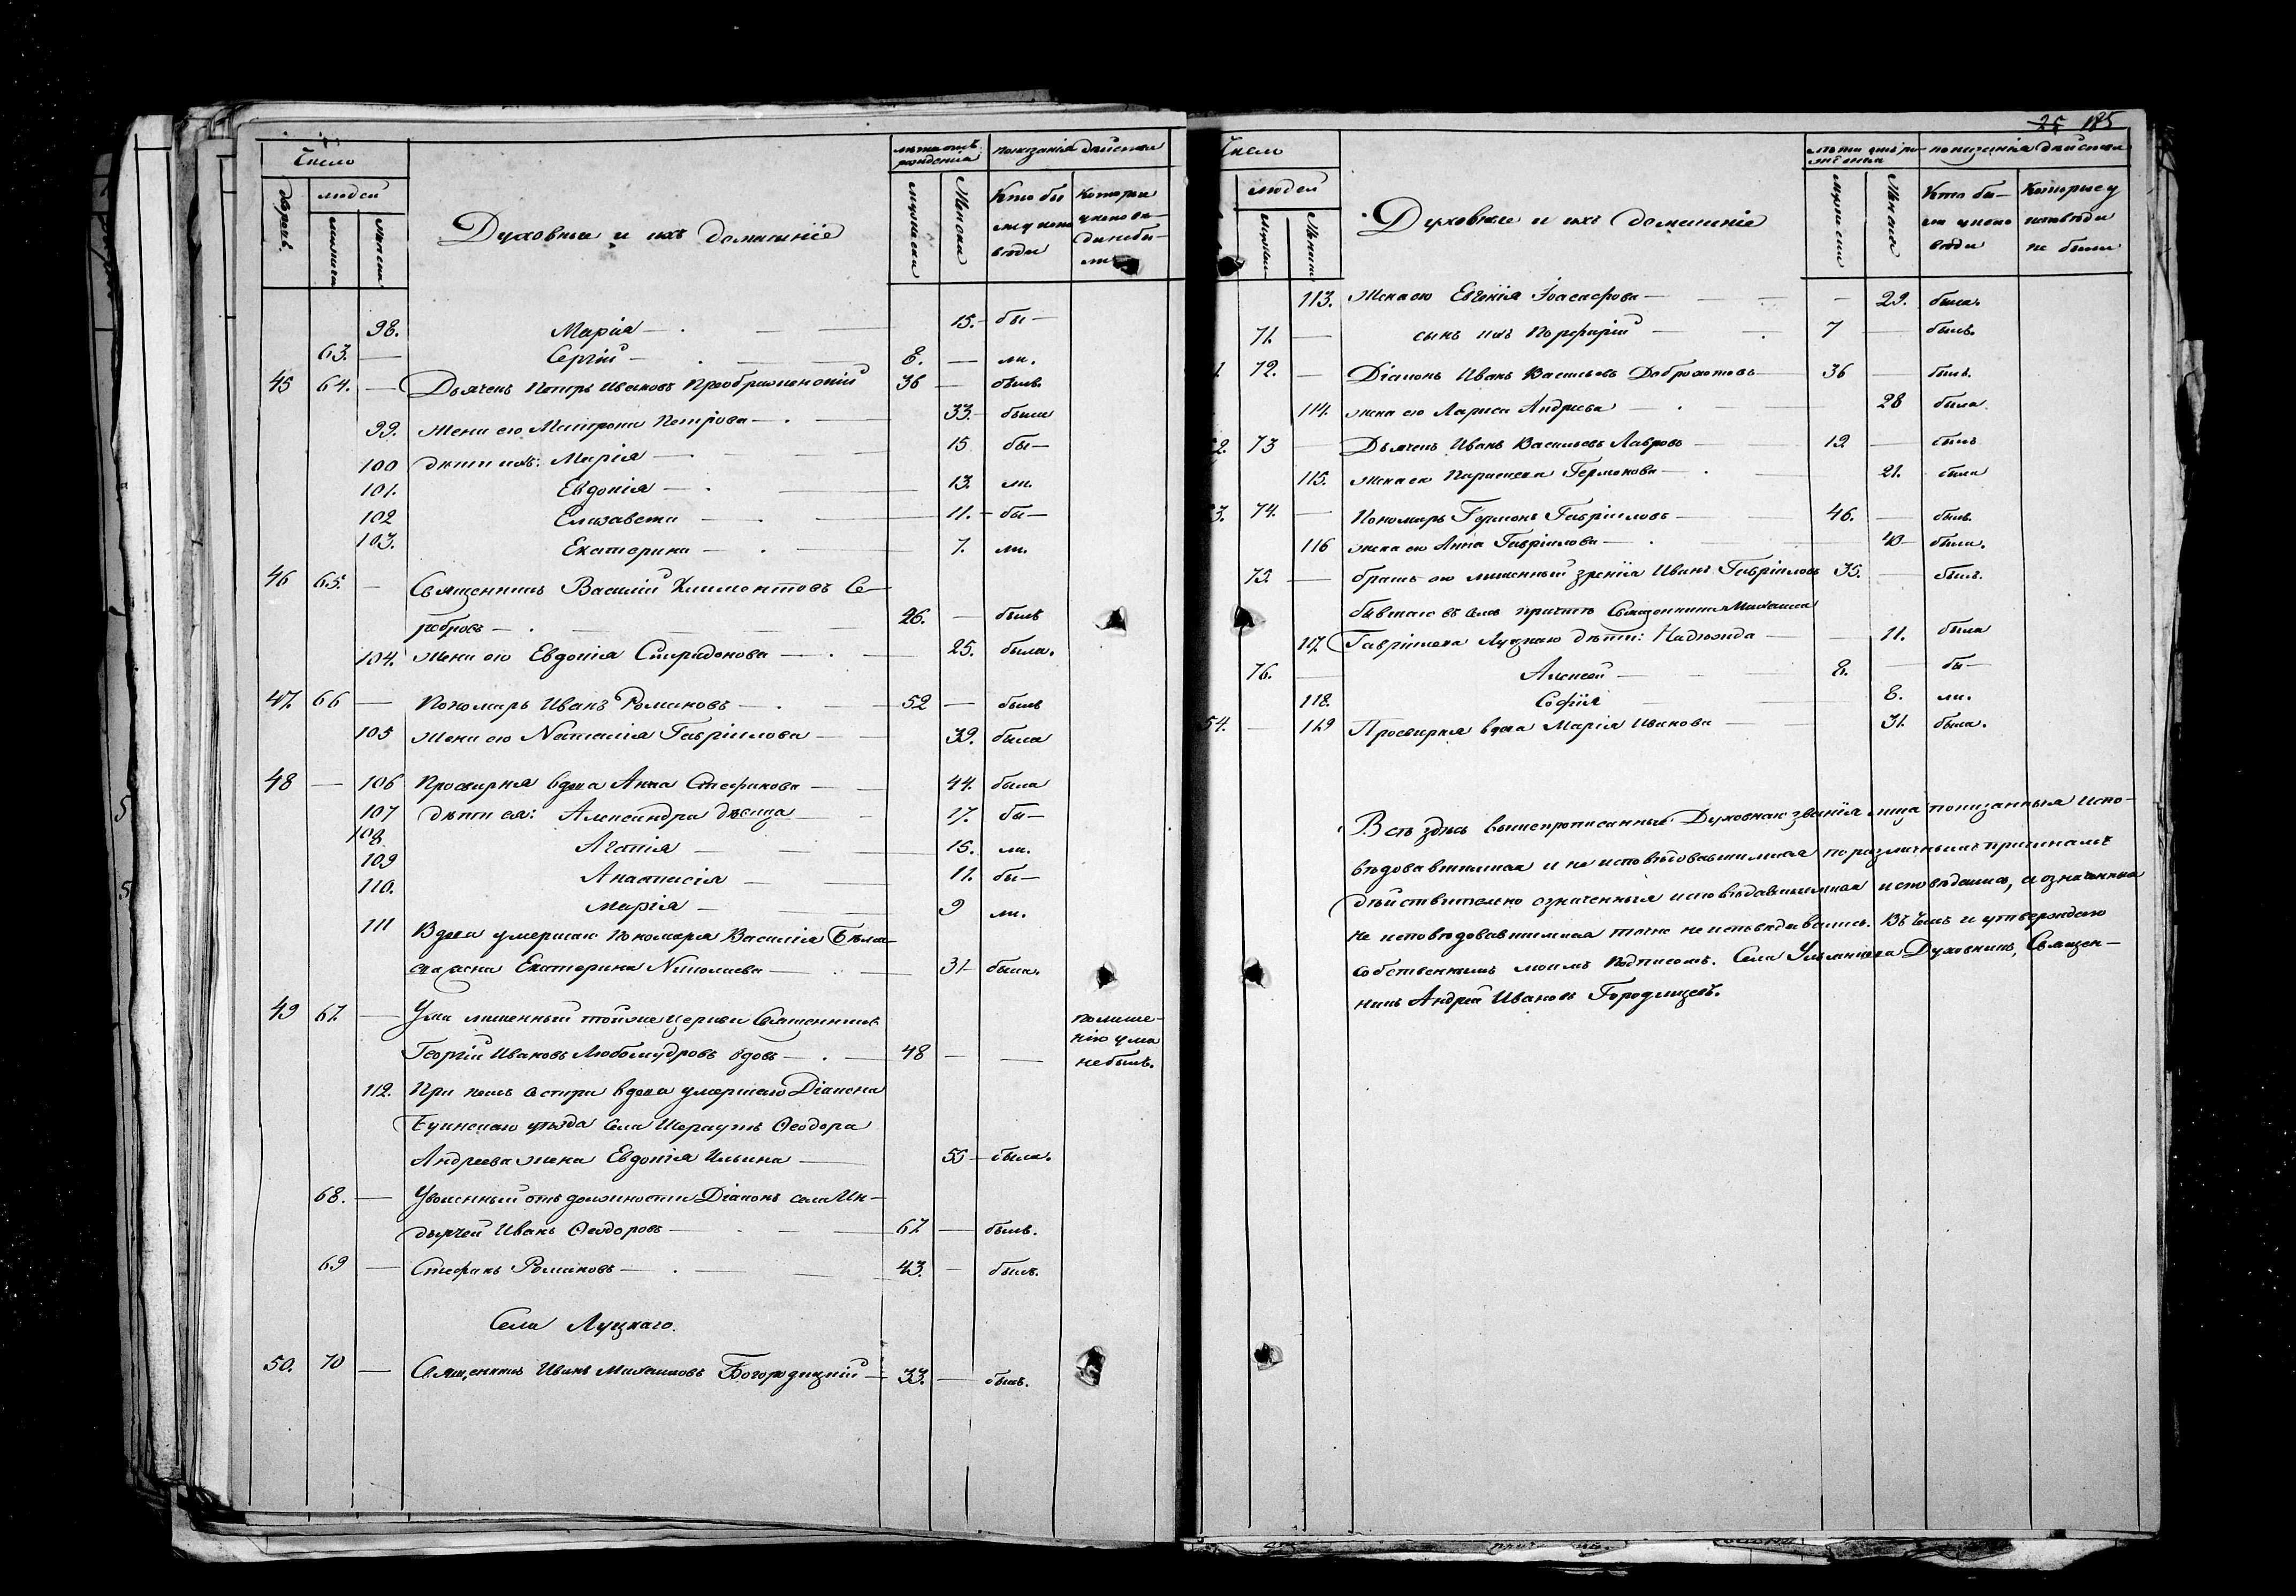 Число
Духовные и ихъ домашніе
лѣта отъ рожденія
показанія дѣйства
дворовъ
людей
мужеска
женска
мужески
женски
Кто бы
ли у испо
вѣди
которые
у исповѣ-
ди не бы-
ли
98. Марія — 15. бы—
63. — Сергій — 8. — ли.
45 64. — Дьячекъ Петръ Ивановъ Преображенскій 36 — былъ.
99. Жена его Матрона Петрова — 33. была
100 дѣти ихъ: Марія — 15 бы—
101. Евдокія — 13. ли.
102 Елизавета — 11. бы—
103. Екатерина — 7. ли.
46 65. — Священникъ Василій Климентовъ Се-
ребровъ — 26. — былъ
104. Жена его Евдокія Спиридонова — 25. была.
47. 66 — Пономарь Иванъ Романовъ — 52 — былъ
105 Жена его Наталія Гавріилова — 39. была
48 — 106 Просвирня вдова Анна Стефанова — 44. была
107 дѣти ея: Александра дѣвица — 17. бы—
108 Агафія — 15. ли.
109 Анастасія — 11. бы—
110. Марія — 9 ли.
111 Вдова умершаго Пономаря Василія
Екатерина Николаева — 31 была.
49 67. — Ума лишенный тойже церкви Священникъ
Георгій Ивановъ Любомудровъ вдовъ — 48 — —
по лише-
нію ума
не былъ.
112. При немъ сестра вдова умершаго Діакона
Буинскаго уѣзда села Шераутъ Ѳеодора
Андреева жена Евдокія Ильина — 55 была.
68. — Уволенный отъ должности Діаконъ села Ин-
дырчей Иванъ Ѳеодоровъ — 67 — былъ.
69 — Стефанъ Романовъ — 43. — былъ.
Села Луцкаго.
50. 70 — Священникъ Иванъ Михаиловъ Богородицкій — 33. — былъ.
25 185
Число
людей
Мужски
Женски
Духовные и ихъ домашніе
лѣта отъ ро-
жденія
показанія дѣйства
мужески
женска
Кто бы-
ли у испо
вѣди
Которые у
исповѣди
не были
113. Жена его Евгенія Іоасафова — — 29. была.
71. — сынъ ихъ Порфирій — 7 — былъ.
1. 72. — Діаконъ Иванъ Васильевъ Доброхотовъ 36 — былъ.
114. жена его Лариса Андреева — 28 была
2. 73 — Дьячекъ Иванъ Васильевъ Лавровъ — 19 — былъ
115. Жена его Параскева Гермонова — 21. была
3. 74. — Пономарь Гермонъ Гавріиловъ — 46. — былъ.
116 жена его Анна Гавріилова — 40 была.
75. — братъ его лишенный зрѣнія Иванъ Гавріиловъ 35. — былъ.
бывшаго въ семъ причтѣ Священника Михаила
117. Гавріилова Луцкаго дѣти: Надежда — — 11. была
76. — Алексѣй — 8. — бы—
118. Софія — 8. ли.
54. — 119 Просвирня вдова Марія Иванова — 31. была.
Всѣ здѣсь вышепрописанные Духовнаго званія лица показанныя испо-
вѣдовавшимися и не исповѣдовавшимися по различнымъ причинамъ
дѣйствительно означенныя исповѣдавшимися исповѣдались, и означенныя
не исповѣдовавшимися точно не исповѣдывались. Въ чемъ и утверждаю
собственнымъ моимъ подписомъ. Села Духовникъ, Священ-
никъ Андрей Ивановъ Городищевъ.